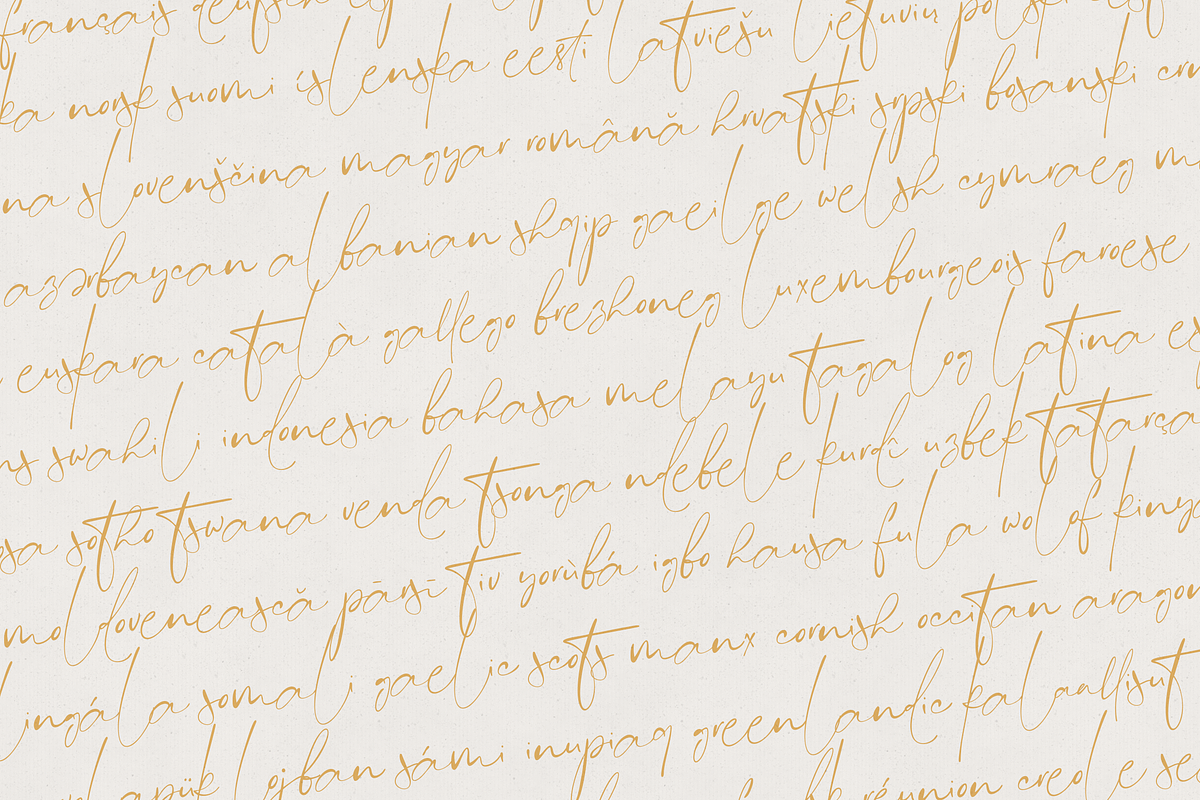 français deutsch
norsk suomi íslenska eesti latviešu lietuvių
slovenščina magyar română hrvatski srpski bosanski
azərbaycan albanian shqip gaeilge welsh cymraeg
euskara català gallego brezhoneg luxembourgeois faroese
swahili indonesia bahasa melayu tagalog latina
sotho tswana venda tsonga ndebele kurdî uzbek tatarça
moldovenească pārsī tiv yorùbá igbo hausa fula wolof
lingála somali gaelic scots manx cornish occitan
lojban sámi inupiaq greenlandic kalaallisut
réunion creole